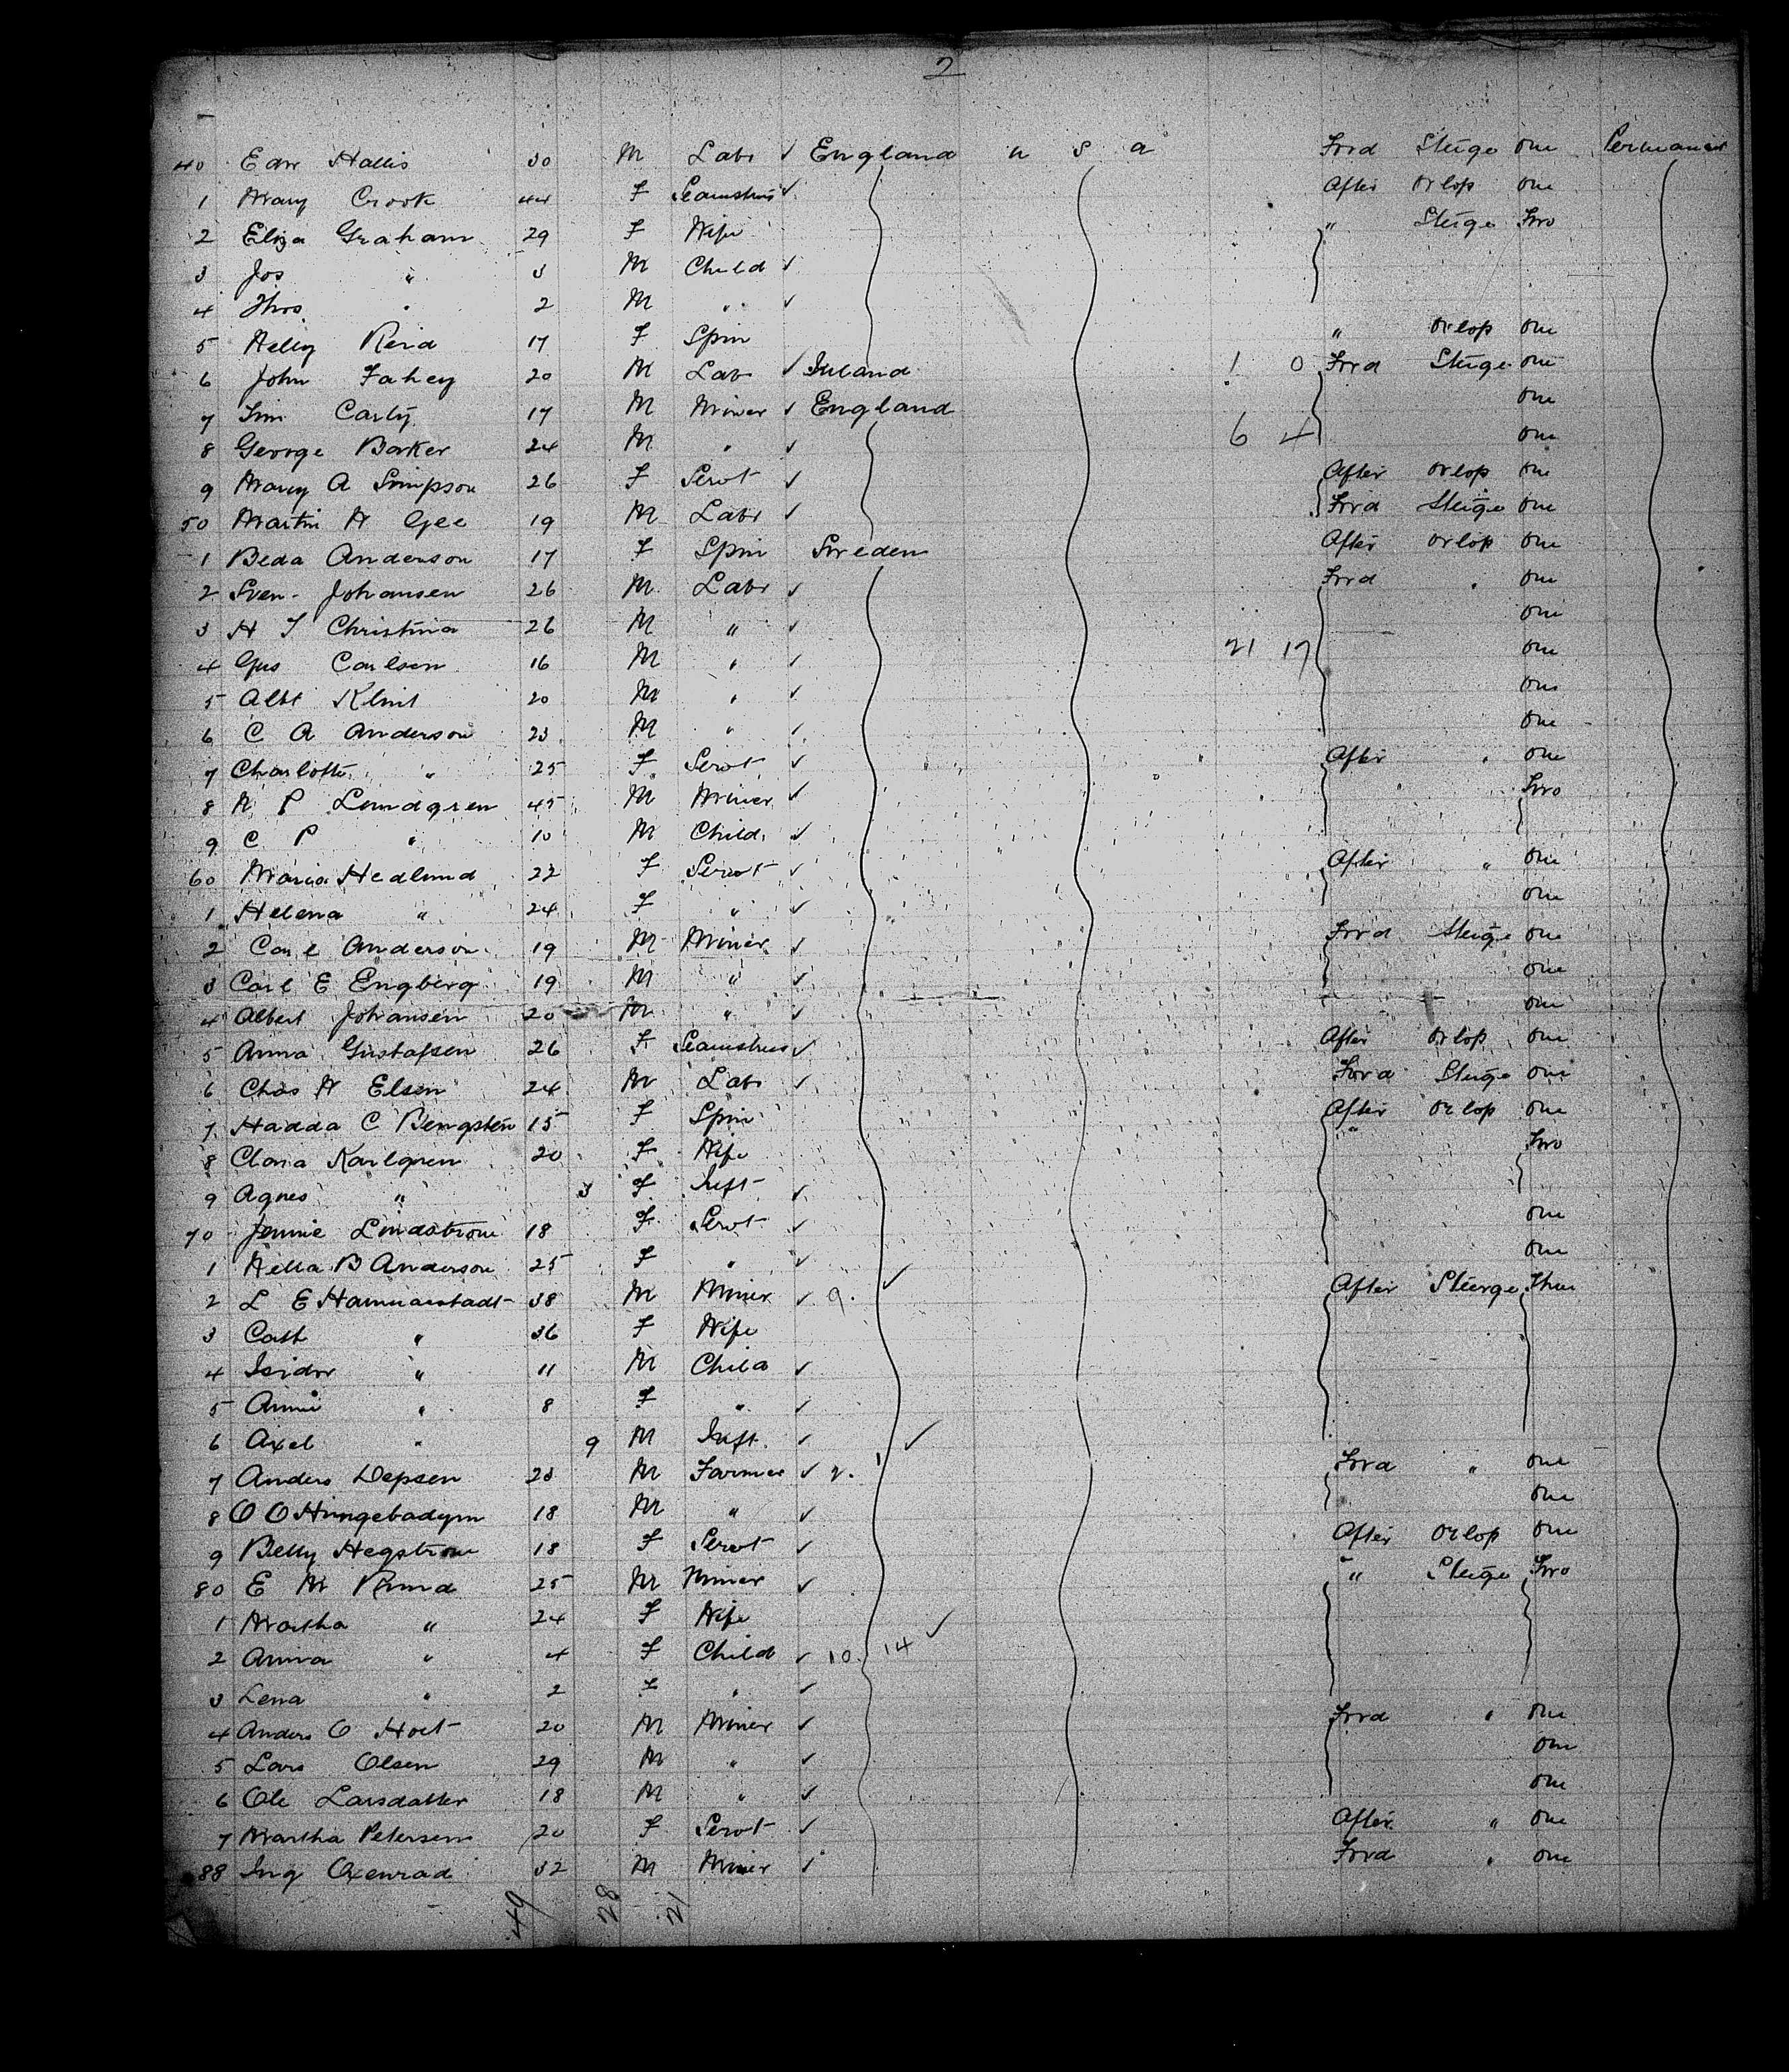 2
40 Edw Hallis 30 M Labr ✓ England u s a Ford Steige one Permanent
1 Mary Crook 44 F Seamstress ✓ After Orlop one
2 Eliza Graham 29 F Wife " Steige Two
3 Jos " 3 M Child ✓
4 Thos " 2 M " ✓
5 Nelly Reid 17 F Spin " Orlop one
6 John Fahey 20 M Lab ✓ Ireland 1 0 Ford Steige one
7 Jim Carty 17 M Miner ✓ England one
8 George Barker 24 M " ✓ 6 4 one
9 Mary A Simpson 26 F Servt ✓ After Orlop one
50 Martin W Gee 19 M Labr ✓ Ford Steige one
1 Beda Anderson 17 F Spin Sweden After Orlop one
2 Sven Johansen 26 M Labr ✓ Ford " one
3 H J Christina 26 M " ✓ one
4 Gus Carlsen 16 M " ✓ 21 17 one
5 Albt Klint 20 M " ✓ one
6 C A Anderson 23 M " ✓ one
7 Charlotte " 25 F Servt ✓ After " one
8 N P Lundgren 45 M Miner ✓ Two
9 C P " 10 M Child ✓
60 Maria Hedlund 22 F Servt ✓ After " one
1 Helena " 24 F " ✓ one
2 Carl Anderson 19 M Miner ✓ Ford Steige one
3 Carl E Engberg 19 M " ✓ one
4 Albert Johansen 20 M " ✓ one
5 Anna Gustafsen 26 F Seamstress ✓ After Orlop one
6 Chas W Elsen 24 M Lab ✓ Ford Steige one
7 Hadda C Bengsten 15 F Spin After Orlop one
8 Clara Karlgren 20 F Wife " Two
9 Agnes " 3 F Inft ✓
70 Jennie Lindstrom 18 F Servt ✓ one
1 Nella B Anderson 25 F " ✓ one
2 L E Hammarstadt 38 M Miner ✓ 9. ✓ After Steerge Three
3 Cath " 36 F Wife
4 Isidor " 11 M Child ✓
5 Annie " 8 F " ✓
6 Axel " 9 M Inft. ✓ ✓
7 Anders Depsen 23 M Farmer ✓ 2. 1 Ford " one
8 O O Hungebadym 18 M " ✓ one
9 Betty Hegstrom 18 F Servt ✓ After Orlop one
80 E M Rund 25 M Miner ✓ " Steige Two
1 Martha " 24 F Wife ✓
2 Anna " 4 F Child ✓ 10. 14
3 Lena " 2 F " ✓
4 Anders O Hoet 20 M Miner ✓ Ford " one
5 Lars Olsen 29 M " ✓ one
6 Ole Larsdatter 18 M " ✓ one
7 Martha Petersen 20 F Servt ✓ After " one
88 Ing Oxenrad 32 M Miner ✓ Ford " one
49 28 21